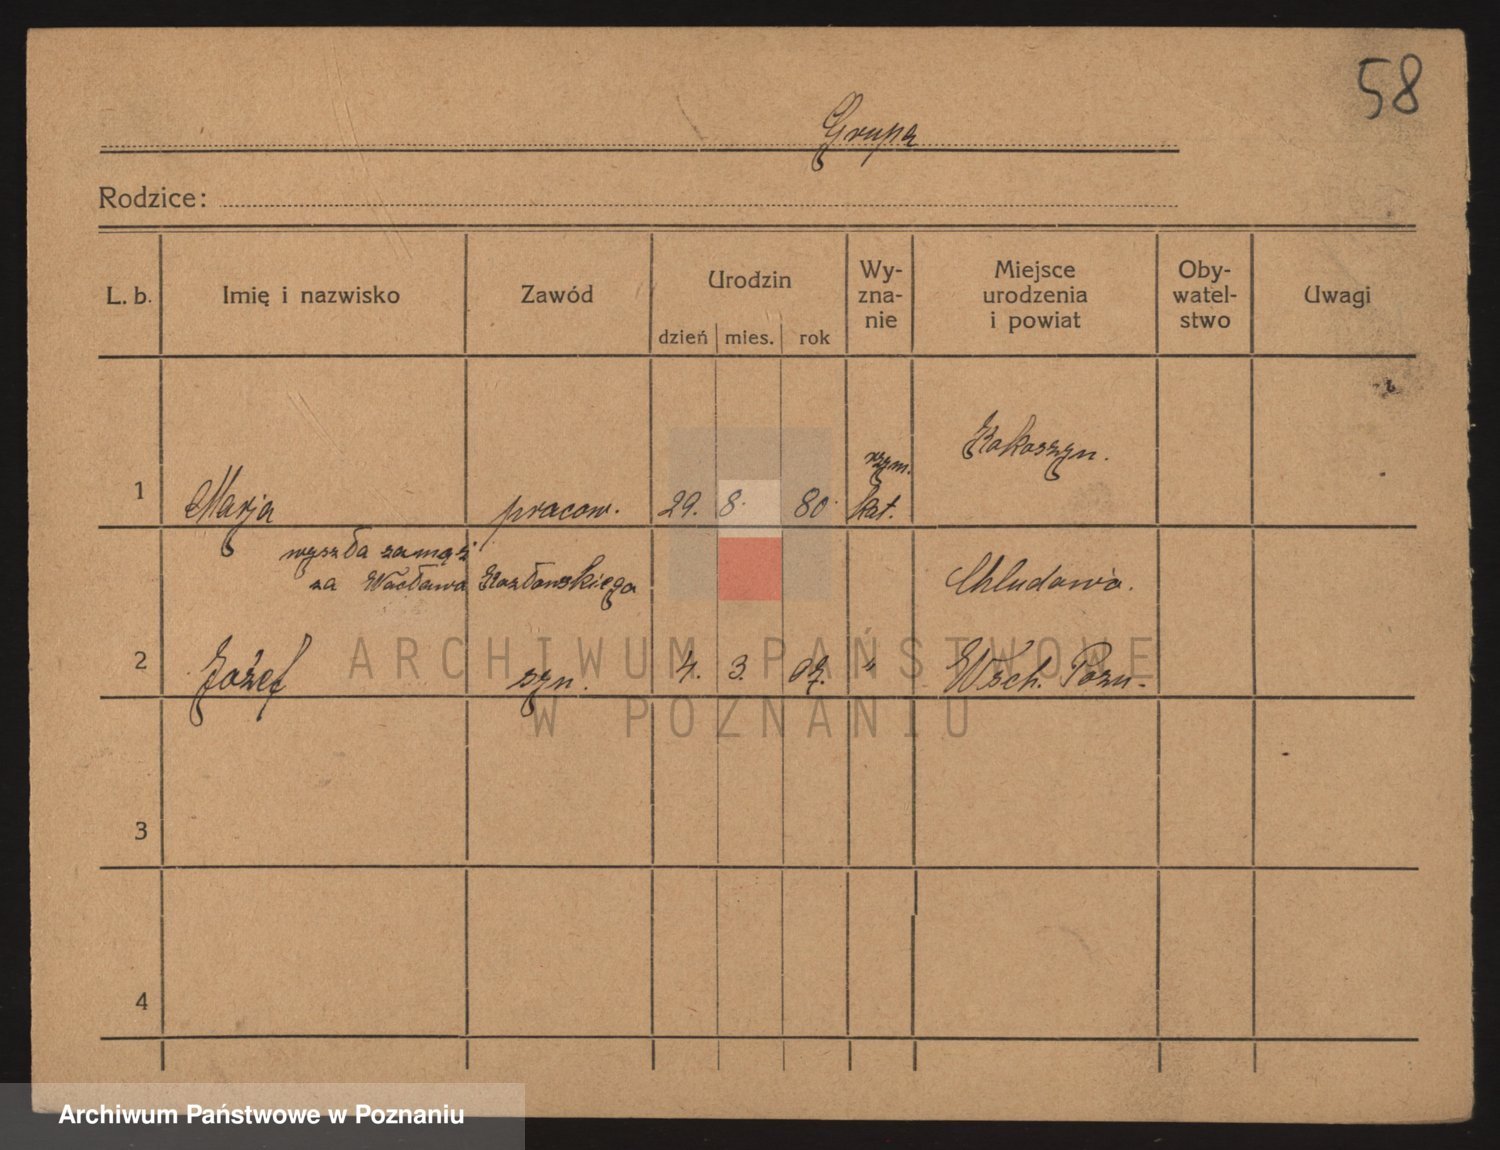 58
Grupa
Rodzice:
L. b. Imię i nazwisko Zawód Urodzin dzień mies. rok Wy-zna-nie Miejsce urodzenia i powiat Oby-watel-stwo Uwagi
Rokoszyn.
rzym.
1 Marja pracow. 29. 8. 80. kat.
wyszła zamąż
za Wacława Kozłowskiego Chludowo.
2 Józef syn. 4. 3. 07. " Wsch. Pozn.
3
4
ARCHIWUM PAŃSTWOWE
W POZNANIU
Archiwum Państwowe w Poznaniu